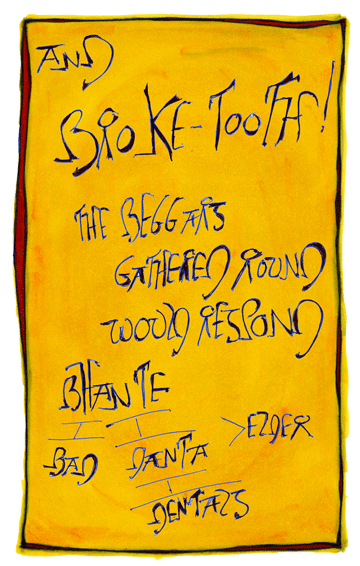 AND
BROKE-TOOTH!
THE BEGGARS
GATHERED ROUND
WOULD RESPOND
BHANTE
>ELDER
BAD DANTA
DENTALS